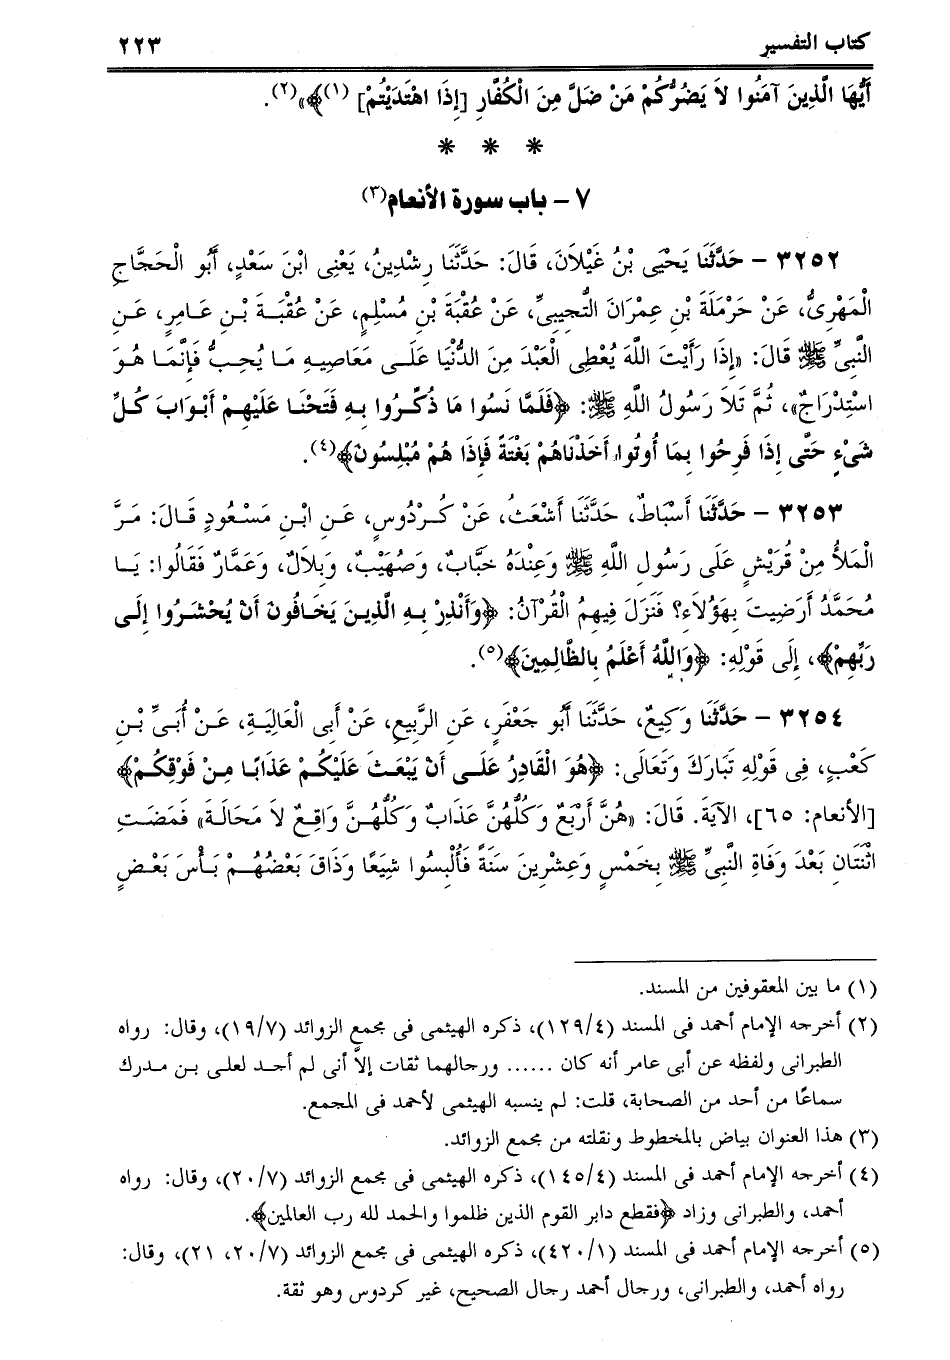 كتاب التفسير ٢٢٣
أَيُّهَا الَّذِينَ آمَنُوا لاَ يَضُرُّكُمْ مَنْ ضَلَّ مِنَ الْكُفَّارِ [إِذَا اهْتَدَيْتُمْ] (١)﴾»(٢).
* * *
٧ – باب سورة الأنعام(٣)
٣٢٥٢ – حَدَّثَنَا يَحْيَى بْنُ غَيْلاَنَ، قَالَ: حَدَّثَنَا رِشْدِينُ، يَعْنِى ابْنَ سَعْدٍ، أَبُو الْحَجَّاجِ
الْمَهْرِىُّ، عَنْ حَرْمَلَةَ بْنِ عِمْرَانَ التُّجِيبِىِّ، عَنْ عُقْبَةَ بْنِ مُسْلِمٍ، عَنْ عُقْبَةَ بْنِ عَامِرٍ، عَنِ
النَّبِىِّ ﷺ قَالَ: «إِذَا رَأَيْتَ اللَّهَ يُعْطِى الْعَبْدَ مِنَ الدُّنْيَا عَلَى مَعَاصِيهِ مَا يُحِبُّ فَإِنَّمَا هُوَ
اسْتِدْرَاجٌ»، ثُمَّ تَلاَ رَسُولُ اللَّهِ ﷺ: ﴿فَلَمَّا نَسُوا مَا ذُكِّرُوا بِهِ فَتَحْنَا عَلَيْهِمْ أَبْوَابَ كُلِّ
شَىْءٍ حَتَّى إِذَا فَرِحُوا بِمَا أُوتُوا أَخَذْنَاهُمْ بَغْتَةً فَإِذَا هُمْ مُبْلِسُونَ﴾(٤).
٣٢٥٣ – حَدَّثَنَا أَسْبَاطٌ، حَدَّثَنَا أَشْعَثُ، عَنْ كُرْدُوسٍ، عَنِ ابْنِ مَسْعُودٍ قَالَ: مَرَّ
الْمَلأُ مِنْ قُرَيْشٍ عَلَى رَسُولِ اللَّهِ ﷺ وَعِنْدَهُ خَبَّابٌ، وَصُهَيْبٌ، وَبِلاَلٌ، وَعَمَّارٌ فَقَالُوا: يَا
مُحَمَّدُ أَرَضِيتَ بِهَؤُلاَءِ؟ فَنَزَلَ فِيهِمُ الْقُرْآنُ: ﴿وَأَنْذِرْ بِهِ الَّذِينَ يَخَافُونَ أَنْ يُحْشَرُوا إِلَى
رَبِّهِمْ﴾، إِلَى قَوْلِهِ: ﴿وَاللَّهُ أَعْلَمُ بِالظَّالِمِينَ﴾(٥).
٣٢٥٤ – حَدَّثَنَا وَكِيعٌ، حَدَّثَنَا أَبُو جَعْفَرٍ، عَنِ الرَّبِيعِ، عَنْ أَبِى الْعَالِيَةِ، عَنْ أُبَىِّ بْنِ
كَعْبٍ، فِى قَوْلِهِ تَبَارَكَ وَتَعَالَى: ﴿هُوَ الْقَادِرُ عَلَى أَنْ يَبْعَثَ عَلَيْكُمْ عَذَابًا مِنْ فَوْقِكُمْ﴾
[الأنعام: ٦٥]، الآيَةَ. قَالَ: «هُنَّ أَرْبَعٌ وَكُلُّهُنَّ عَذَابٌ وَكُلُّهُنَّ وَاقِعٌ لاَ مَحَالَةَ» فَمَضَتِ
اثْنَتَانِ بَعْدَ وَفَاةِ النَّبِىِّ ﷺ بِخَمْسٍ وَعِشْرِينَ سَنَةً فَأُلْبِسُوا شِيَعًا وَذَاقَ بَعْضُهُمْ بَأْسَ بَعْضٍ
(١) ما بين المعقوفين من المسند.
(٢) أخرجه الإمام أحمد فى المسند (١٢٩/٤)، ذكره الهيثمى فى مجمع الزوائد (١٩/٧)، وقال: رواه
الطبرانى ولفظه عن أبى عامر أنه كان ...... ورجالهما ثقات إلاَّ أنى لم أجد لعلى بن مدرك
سماعًا من أحد من الصحابة، قلت: لم ينسبه الهيثمى لأحمد فى المجمع.
(٣) هذا العنوان بياض بالمخطوط ونقلته من مجمع الزوائد.
(٤) أخرجه الإمام أحمد فى المسند (١٤٥/٤)، ذكره الهيثمى فى مجمع الزوائد (٢٠/٧)، وقال: رواه
أحمد، والطبرانى وزاد ﴿فقطع دابر القوم الذين ظلموا والحمد لله رب العالمين﴾.
(٥) أخرجه الإمام أحمد فى المسند (٤٢٠/١)، ذكره الهيثمى فى مجمع الزوائد (٢٠/٧، ٢١)، وقال:
رواه أحمد، والطبرانى، ورجال أحمد رجال الصحيح، غير كردوس وهو ثقة.